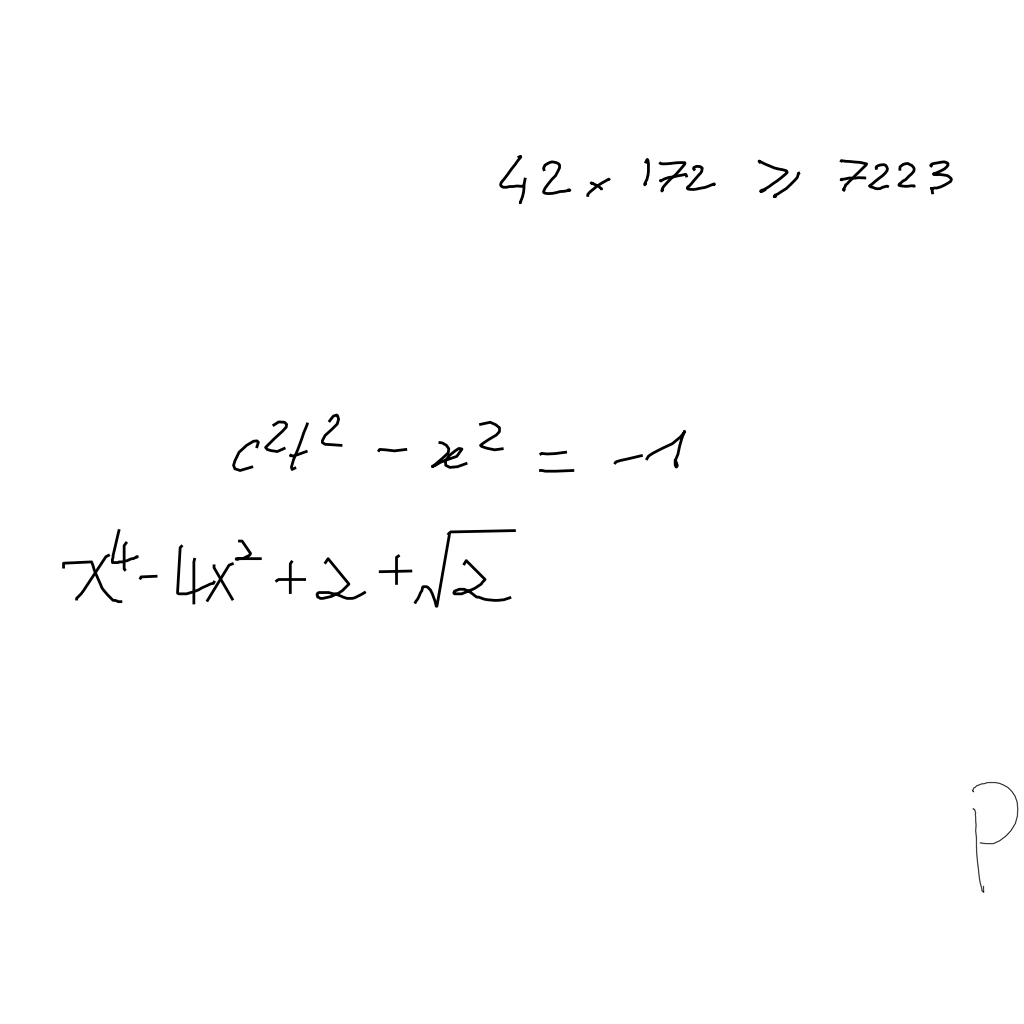 42 × 172 ⩾ 7223
c²t² − x² = −1
x⁴ − 4x² + 2 + √2
P